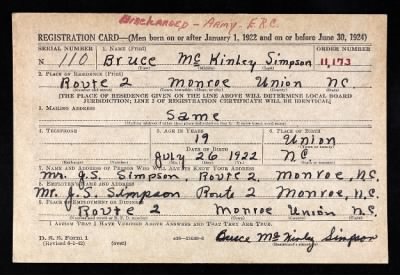 DISCHARGED - ARMY - E.R.C.
REGISTRATION CARD—(Men born on or after January 1, 1922 and on or before June 30, 1924)
SERIAL NUMBER 1. NAME (Print) ORDER NUMBER
N 110 Bruce McKinley Simpson 11,173
(First) (Middle) (Last)
2. PLACE OF RESIDENCE (Print)
Route 2 Monroe Union N.C.
(Number and street) (Town, township, village, or city) (County) (State)
[THE PLACE OF RESIDENCE GIVEN ON THE LINE ABOVE WILL DETERMINE LOCAL BOARD
JURISDICTION; LINE 2 OF REGISTRATION CERTIFICATE WILL BE IDENTICAL]
3. MAILING ADDRESS
Same
4. TELEPHONE 5. AGE IN YEARS 6. PLACE OF BIRTH
19 Union
DATE OF BIRTH
July 26 1922 N.C.
(Exchange) (Number) (Mo.) (Day) (Yr.) (State or country)
7. NAME AND ADDRESS OF PERSON WHO WILL ALWAYS KNOW YOUR ADDRESS
Mr. J.S. Simpson, Route 2, Monroe, N.C.
8. EMPLOYER'S NAME AND ADDRESS
Mr. J.S. Simpson Route 2 Monroe, N.C.
9. PLACE OF EMPLOYMENT OR BUSINESS
Route 2 Monroe Union N.C.
(Number and street or R. F. D. number) (Town) (County) (State)
I AFFIRM THAT I HAVE VERIFIED ABOVE ANSWERS AND THAT THEY ARE TRUE.
D. S. S. Form 1
Bruce McKinley Simpson